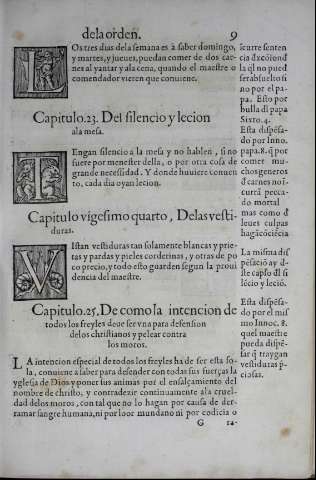 dela orden. 9
LOs tres dias dela semana es à saber domingo,
y martes, y jueues, puedan comer de dos car-
nes al yantar y ala cena, quando el maestre o
comendador vieren que conuiene.
Capitulo.23. Del silencio y lecion
ala mesa.
TEngan silencio a la mesa y no hablen, si no
fuere por menester della, o por otra cosa de
grande necessidad. Y donde huuiere conuen
to, cada dia oyan lecion.
Capitulo vigesimo quarto, Delas vesti-
duras.
VIstan vestiduras tan solamente blancas y prie-
tas y pardas y pieles corderinas, y otras de po
co precio, y todo esto guarden segun la proui
dencia del maestre.
Capitulo.25. De como la intencion de
todos los freyles deue ser vna para defension
delos christianos y pelear contra
los moros.
LA intencion especial de todos los freyles ha de ser esta so-
la, conuiene a saber para defender con todas sus fuerças la
yglesia de Dios y poner sus animas por el ensalçamiento del
nombre de christo, y contradezir continuamente ala cruel-
dad delos moros, con tal que no lo hagan por causa de der-
ramar sangre humana, ni por loor mundano ni por codicia o
G ra-
scurre senten
cia dexcōiond
la ql no pued
ser absuelto si
no por el pa-
pa. Esto por
bulla dl papa
Sixto.4.
Esta dispēsa-
do por Inno.
papa.8. q̃ por
comer mu-
chos generos
d carnes no i-
currā pecca-
do mortal
mas como d
leues culpas
hagā cōciēcia
La misma dis
pesació ay d-
ste capso dl si
lécio y leció.
Esta dispēsa-
do por el mis
mo Innoc. 8.
quel maestre
pueda dispē-
sar q̃ traygan
vestiduras p-
ciosas.